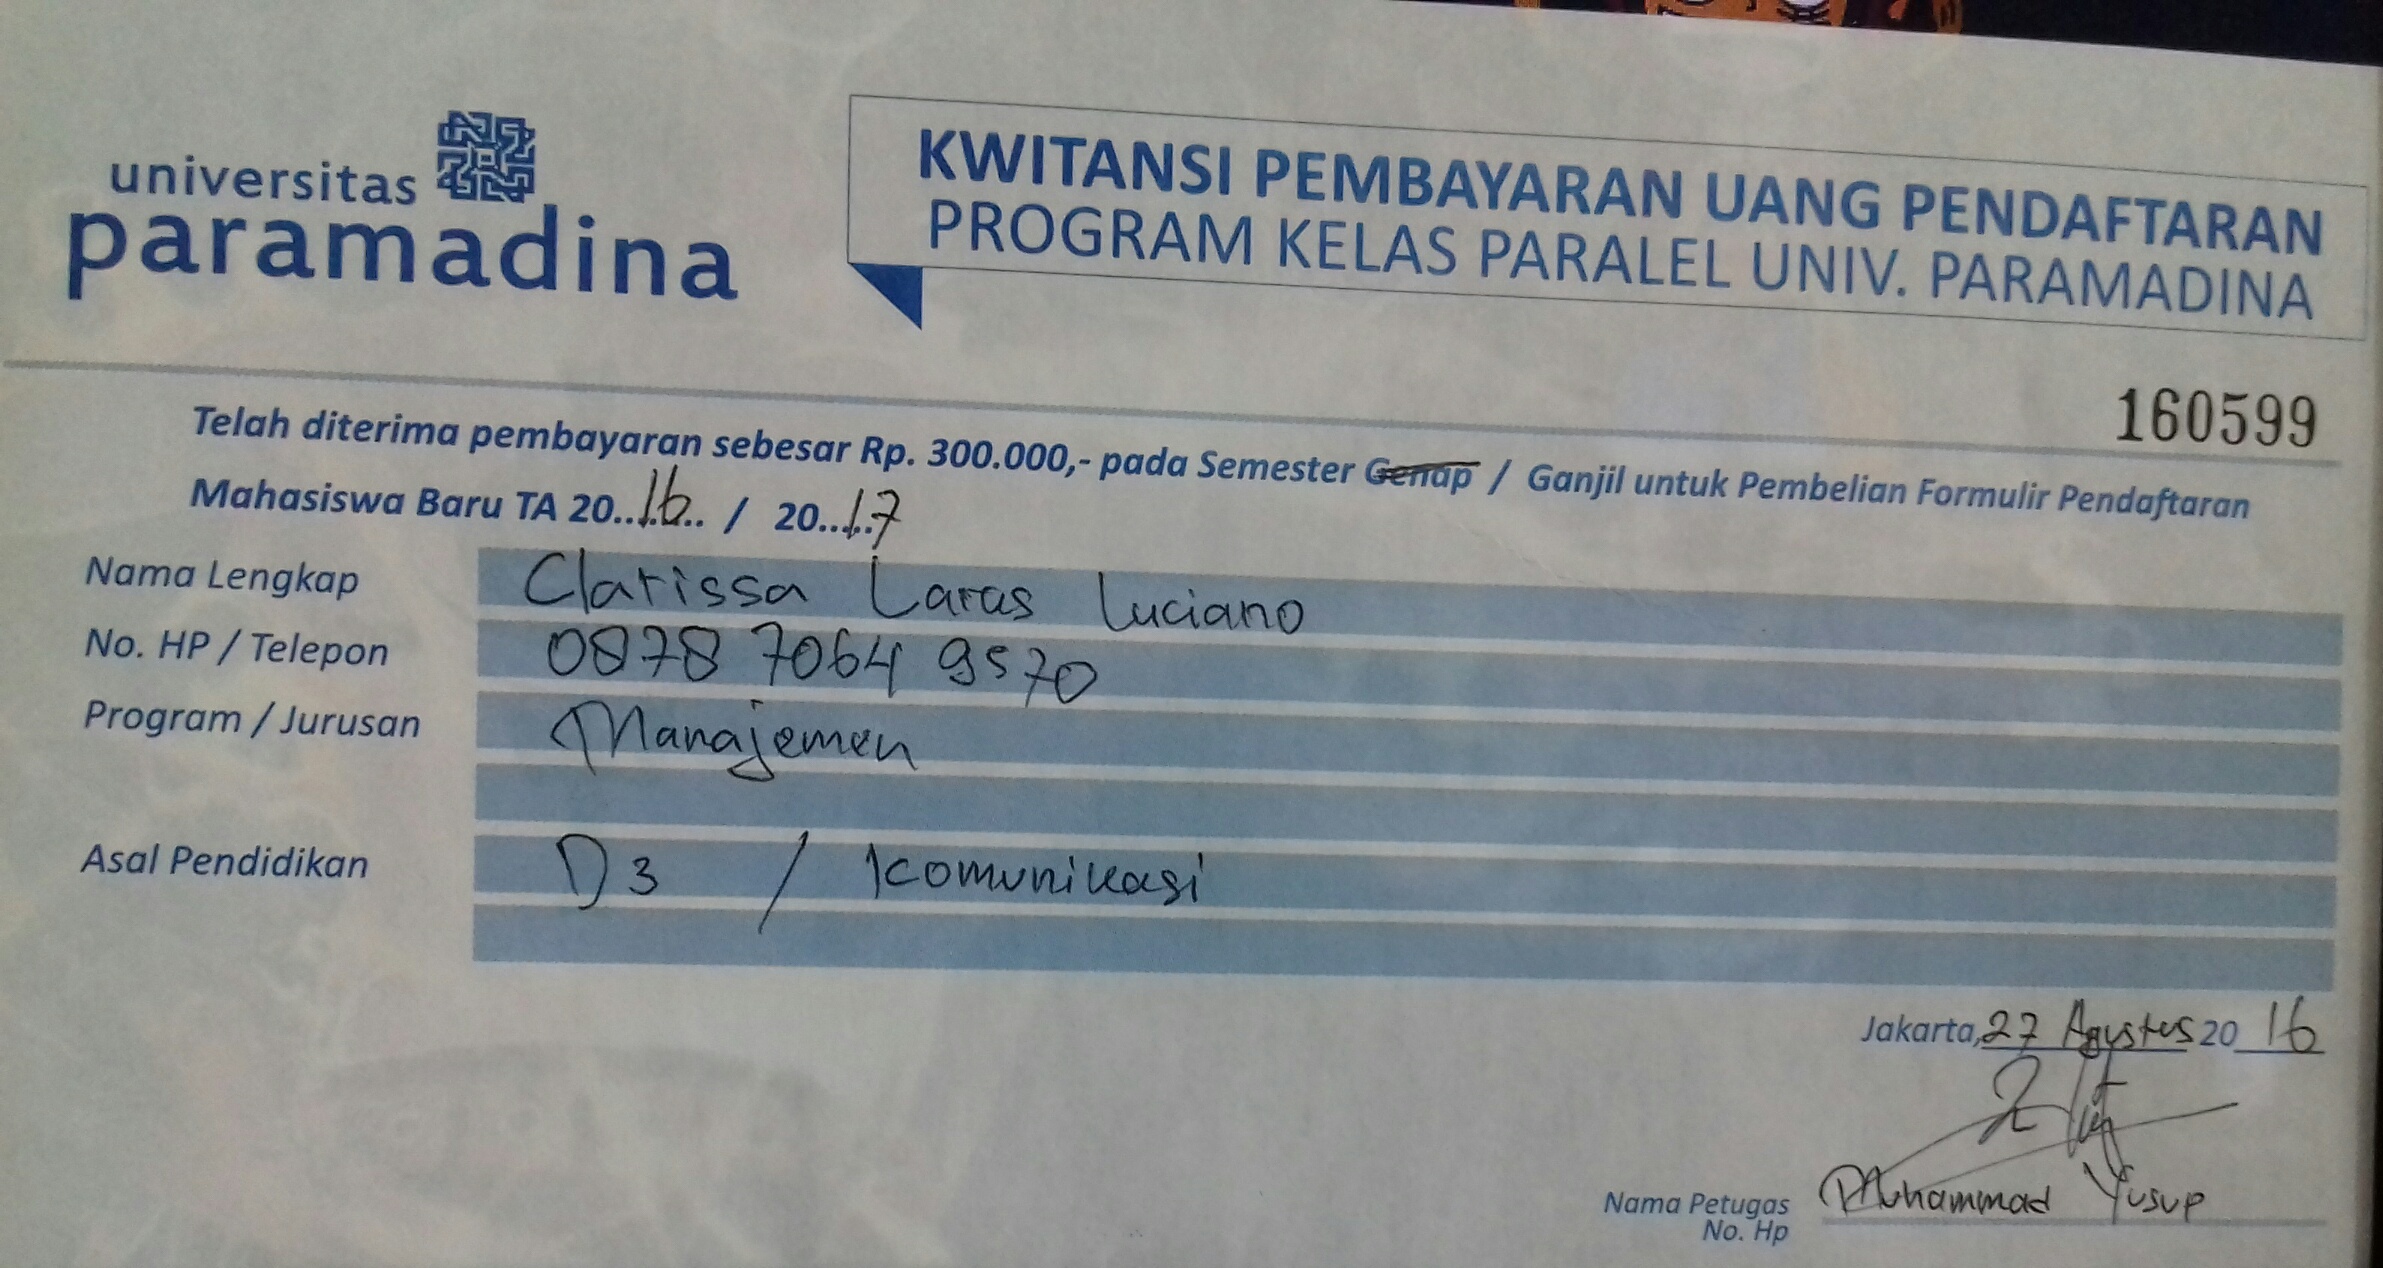 universitas
paramadina
KWITANSI PEMBAYARAN UANG PENDAFTARAN
PROGRAM KELAS PARALEL UNIV. PARAMADINA
160599
Telah diterima pembayaran sebesar Rp. 300.000,- pada Semester Genap / Ganjil untuk Pembelian Formulir Pendaftaran
Mahasiswa Baru TA 20..16.. / 20..17
Nama Lengkap Clarissa Laras Luciano
No. HP / Telepon 0878 7064 9570
Program / Jurusan Manajemen
Asal Pendidikan D3 / Komunikasi
Jakarta, 27 Agustus 20 16
Nama Petugas Muhammad Yusup
No. Hp